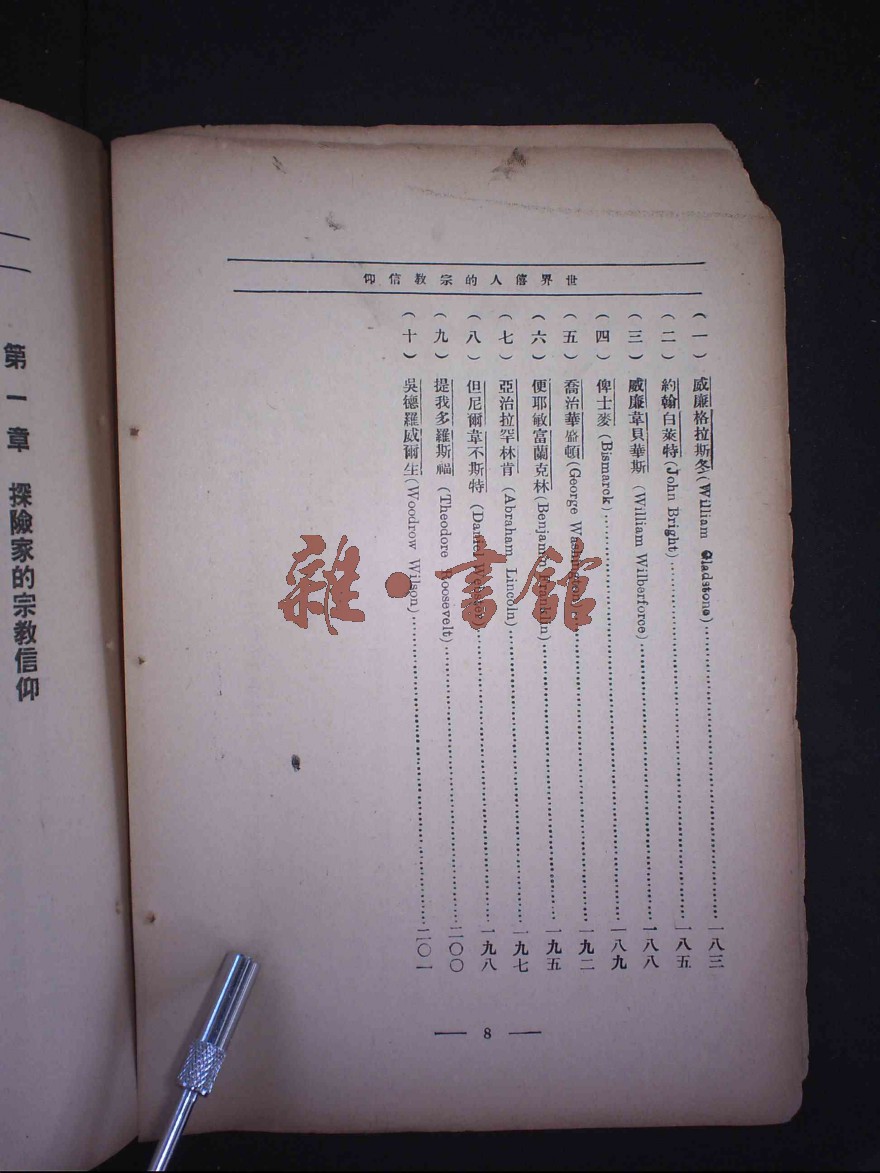 世界偉人的宗教信仰
(一) 威廉格拉斯冬(William Gladstone)……一八三
(二) 約翰白萊特(John Bright)……一八五
(三) 威廉韋貝華斯 (William Wilberforce)……一八八
(四) 俾士麥 (Bismarck)……一八九
(五) 喬治華盛頓(George Washington)……一九二
(六) 便耶敏富蘭克林(Benjamin Franklin)……一九五
(七) 亞治拉罕林肯 (Abraham Lincoln)……一九七
(八) 但尼爾韋不斯特 (Daniel Webster)……一九八
(九) 提我多羅斯福 (Theodore Roosevelt)……二〇〇
(十) 吳德羅威爾生(Woodrow Wilson)……二〇一
— 8 —
第一章 探險家的宗教信仰
雜·書館